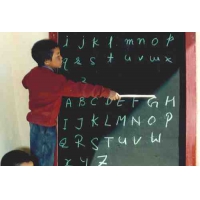 i j k l m n o p
q r s t u v w x
A B C D E F G H
I J K L M N O P
Q R S T U V W
X Y Z